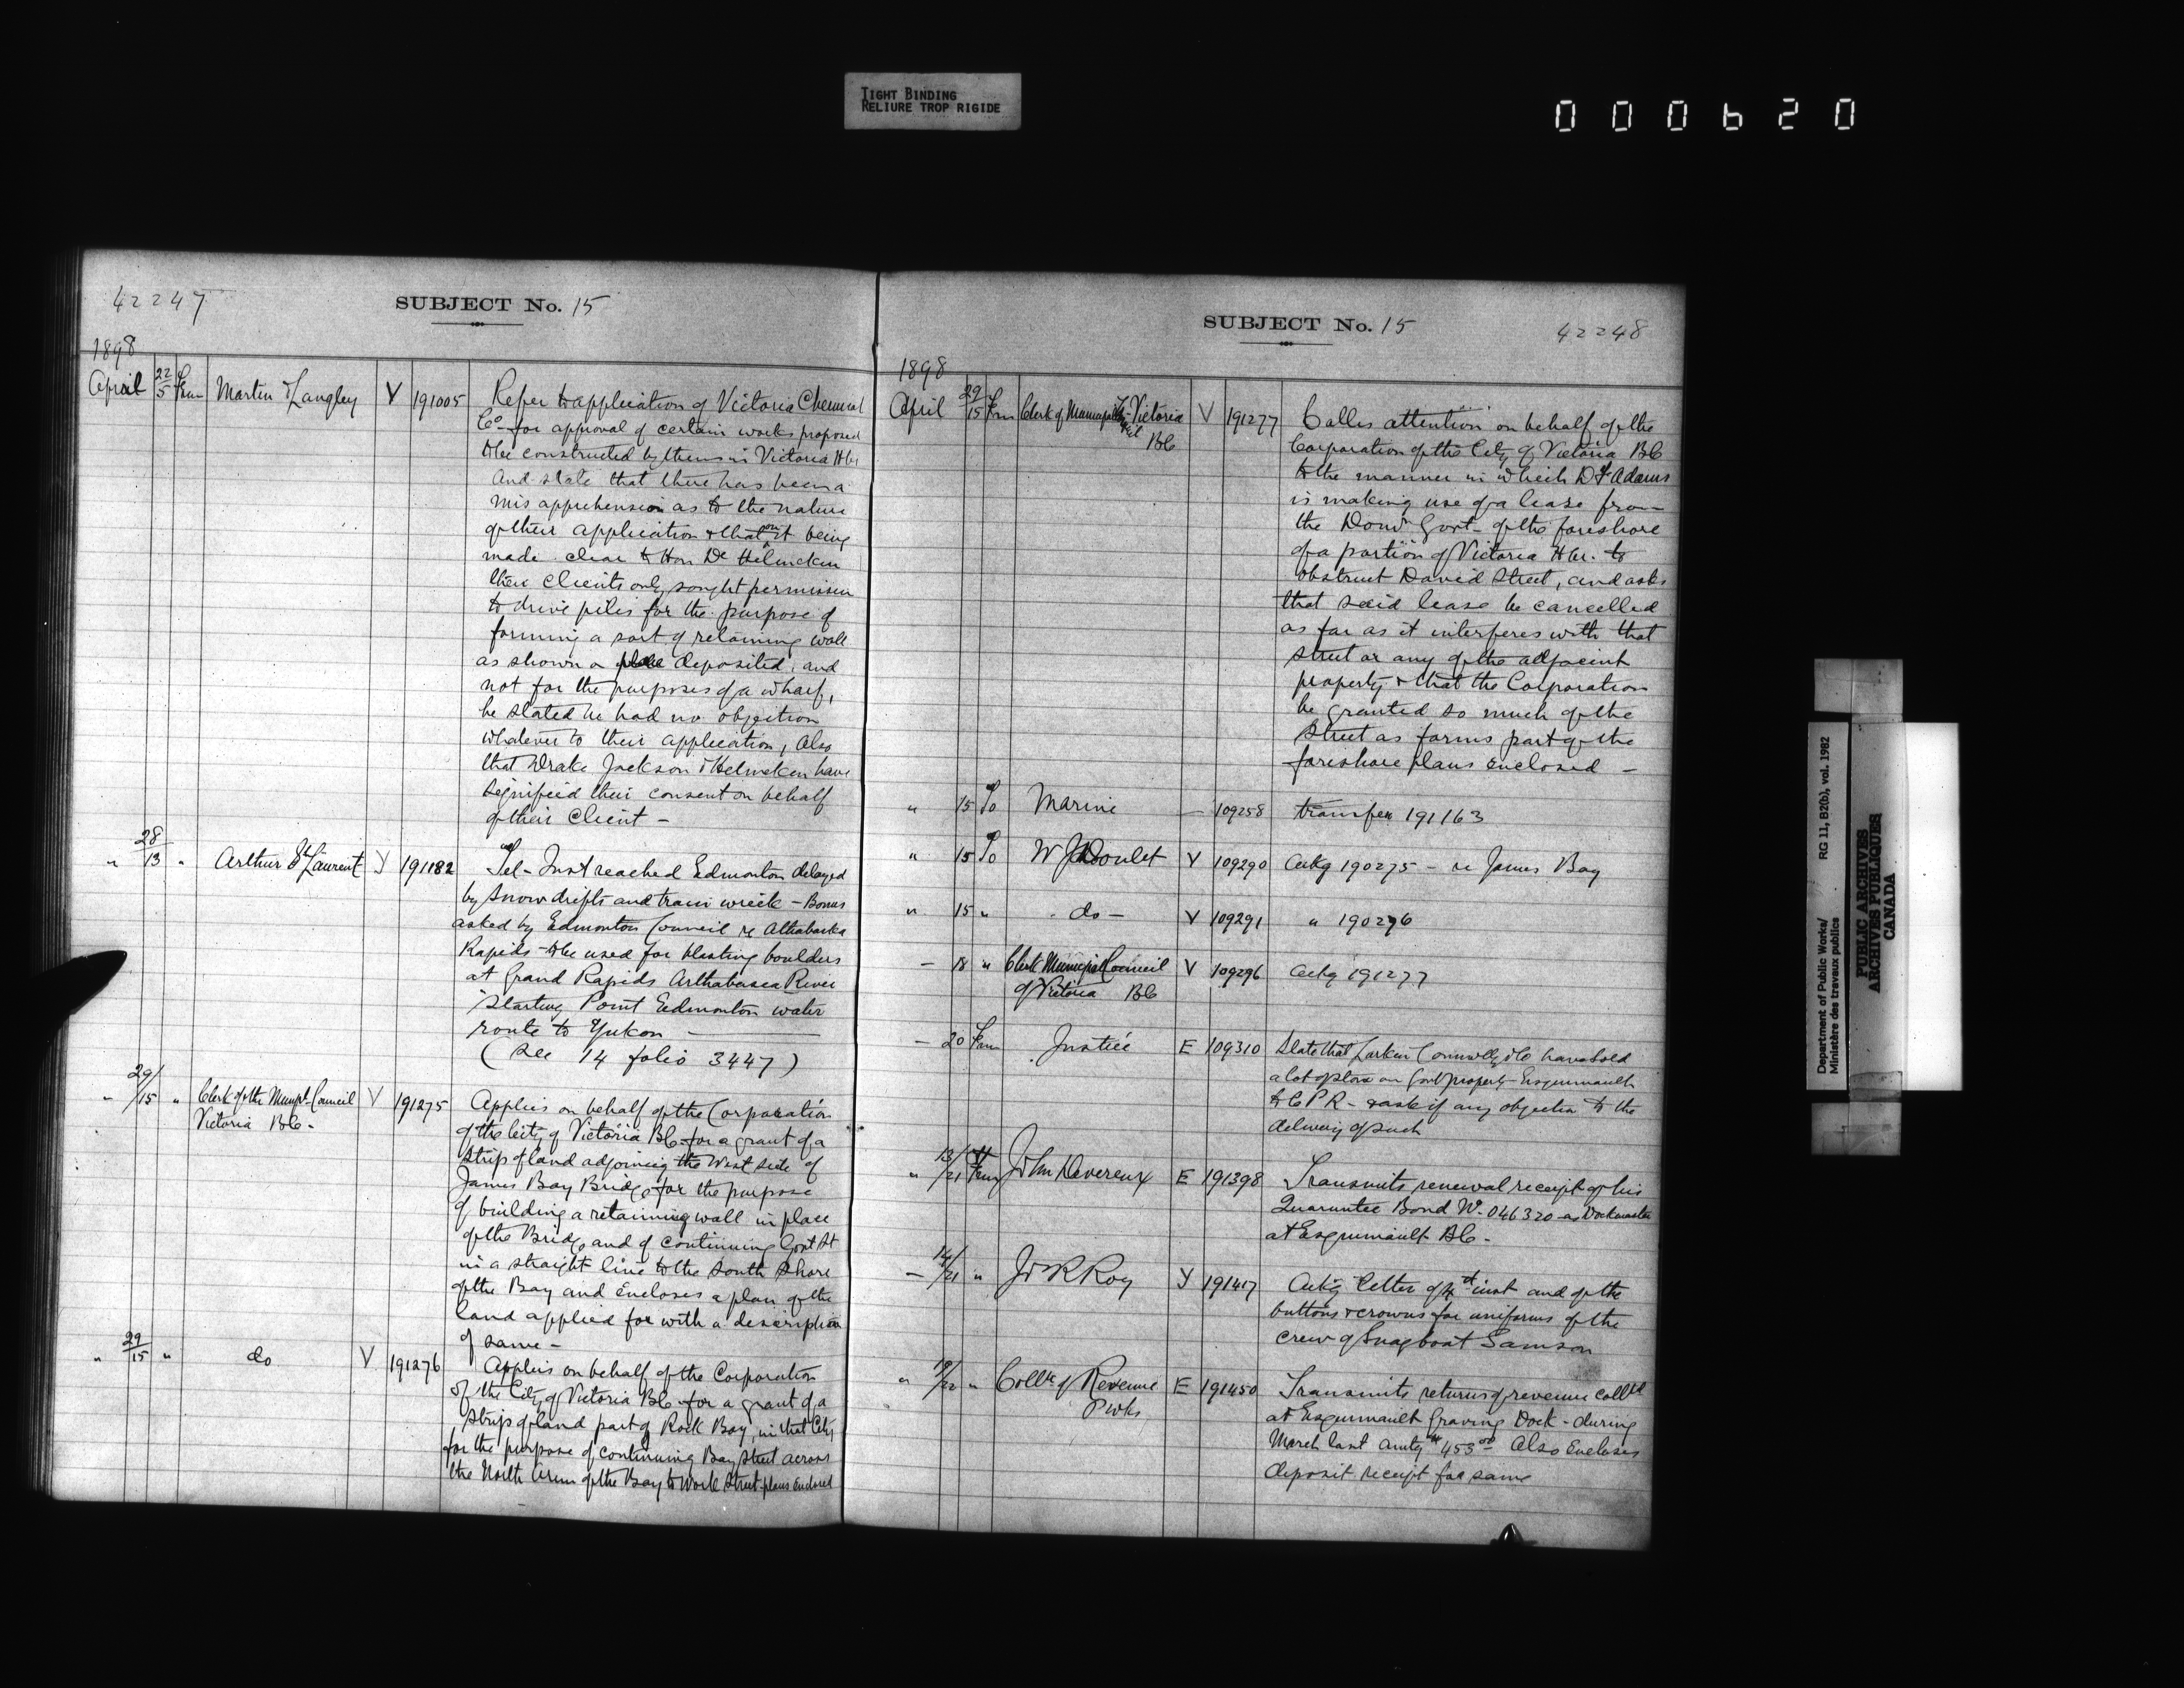 TIGHT BINDING
RELIURE TROP RIGIDE
000620
42247
SUBJECT No. 15
1898
April 22/5 From Martin & Langley V 191005 Refer to application of Victoria Chemical
Co for approval of certain works proposed
to be constructed by them in Victoria Hbr
And state that there has been a
mis apprehension as to the nature
of their application & that on it being
made clear to Hon Dr Helmcken
their Clients only sought permission
to drive piles for the purpose of
forming a sort of retaining wall
as shown on deposited, and
not for the purposes of a wharf,
he stated he had no objection
whatever to their application, Also
that Drake Jackson & Helmcken have
Signified their consent on behalf
of their Client -
" 28/13 " Arthur St Laurent Y 191182 Tel - Just reached Edmonton delayed
by snow drifts and train wreck - Bonus
asked by Edmonton Council re Athabaska
Rapids to be used for blasting boulders
at Grand Rapids Arthabasca River
Starting Point Edmonton water
route to Yukon -
(See 14 folio 3447)
" 29/15 " Clerk of the Municpl Council V 191275 Applies on behalf of the Corporation
Victoria BC - of the City of Victoria BC for a grant of a
strip of land adjoining the West side of
James Bay Bridge for the purpose
of building a retaining wall in place
of the Bridge and of continuing Govt St
in a straight line to the South Shore
of the Bay and Encloses a plan of the
land applied for with a description
of same -
" 29/15 " do V 191276 Applies on behalf of the Corporation
of the City of Victoria BC for a grant of a
strip of land part of Rock Bay, in that City
for the purpose of continuing Bay Street across
the North Arm of the Bay to Work Street - plans enclosed
SUBJECT No. 15
42248
1898
April 29/15 From Clerk of Municipal Council Victoria V 191277 Calls attention on behalf of the
BC Corporation of the City of Victoria BC
to the manner in which D F Adams
is making use of a lease from
the Domn Govt - of the foreshore
of a portion of Victoria Hbr. to
obstruct David Street, and asks
that said lease be cancelled
as far as it interferes with that
street or any of the adjacent
property & that the Corporation
be granted so much of the
Street as forms part of the
foreshore plans enclosed -
" 15 To Marine - 109258 transfer 191163
" 15 To W V 109290 Ackg 190275 - re James Bay
" 15 " do - V 109291 " 190276
- 18 " Clerk Municipal Council V 109296 Ackg 191277
of Victoria BC
- 20 From Justice E 109310 State that Larkin Connolly & Co have sold
a lot of stone on Govt property Esquimault
to C P R - & ask if any objection to the
delivery of such
" 13/21 From John Devereux E 191398 Transmits renewal receipt of his
Guarantee Bond No. 046320 as Dockmaster
at Esquimault BC -
- 14/21 " J R Roy Y 191417 Ackg letter of inst and of the
buttons & crowns for uniforms of the
crew of Snagboat Samson
" /22 " Collr of Revenue E 191450 Transmits returns of revenue colltd
P Wks at Esquimault Graving Dock - during
March last amtg $453.00 Also Encloses
deposit receipt for same
Department of Public Works/
Ministère des travaux publics
RG 11, B2(b), vol. 1982
PUBLIC ARCHIVES
ARCHIVES PUBLIQUES
CANADA